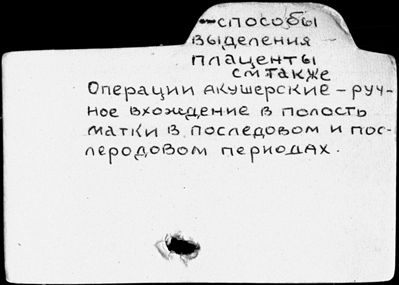 —способы
выделения
плаценты
см также
Операции акушерские – руч-
ное вхождение в полость
матки в последовом и пос-
леродовом периодах.